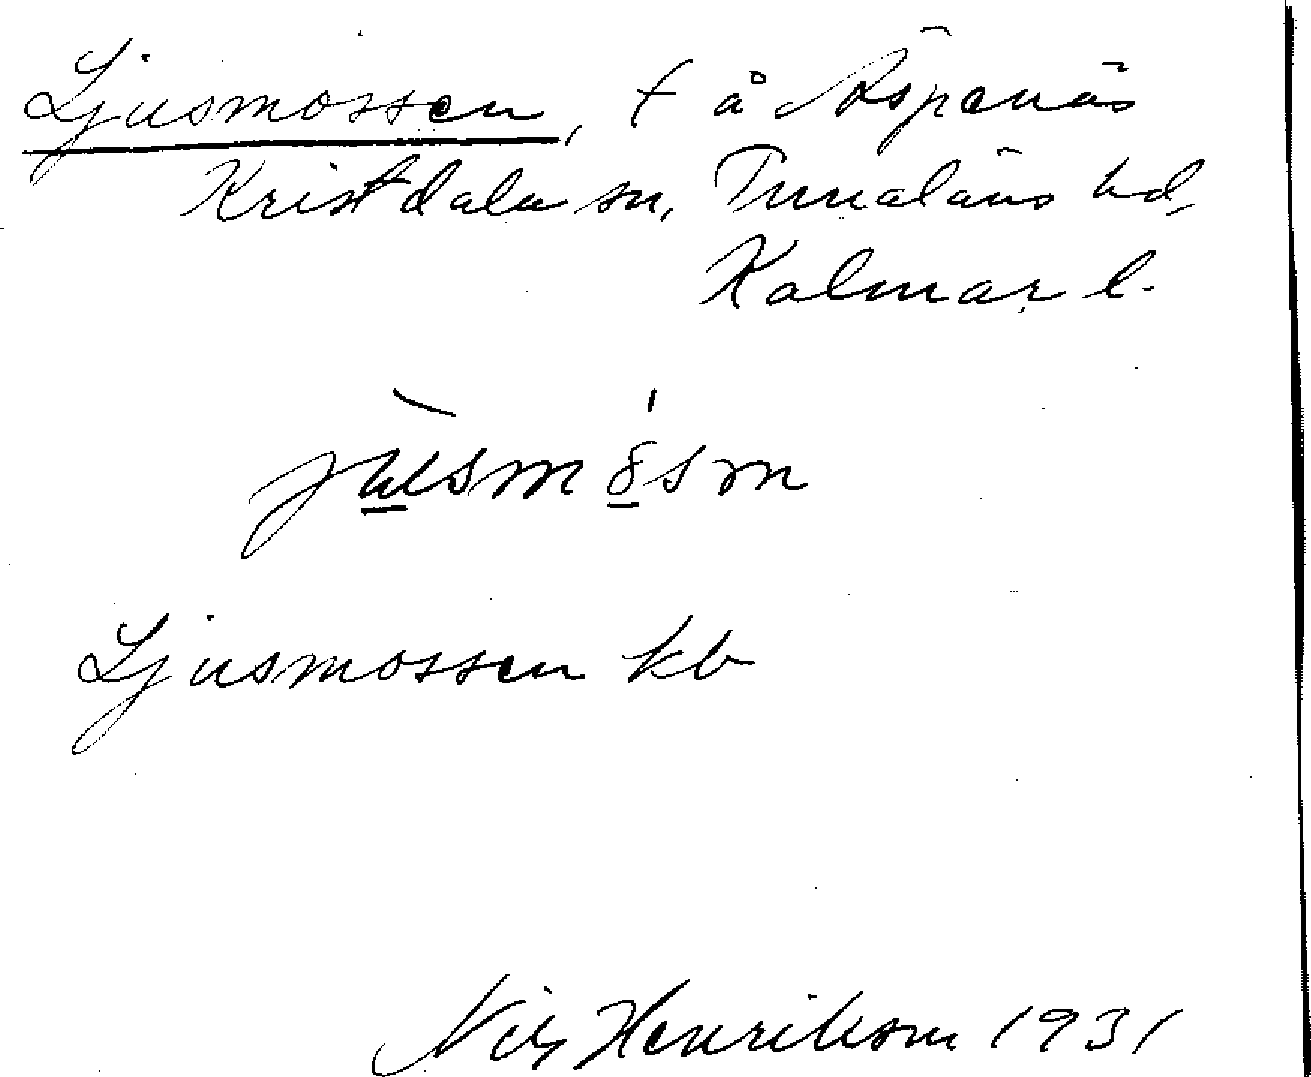 Ljusmossen, t å Äspenäs
Kristdala sn, Tunaläns hd,
Kalmar l.
Ljusmossen kb
Nils Henrikson 1931